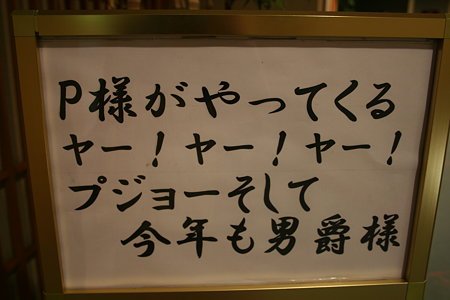 P様がやってくる
ヤー！ヤー！ヤー！
プジョーそして
今年も男爵様